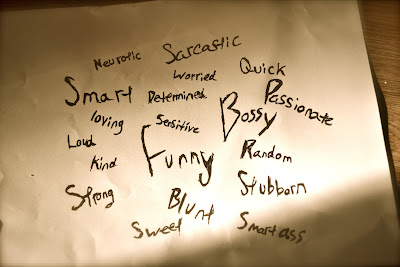 Neurotic Sarcastic
Worried Quick
Smart Determined Passionate
loving Sensitive Bossy
Loud Funny Random
Kind
Strong Blunt Stubborn
Sweet Smartass